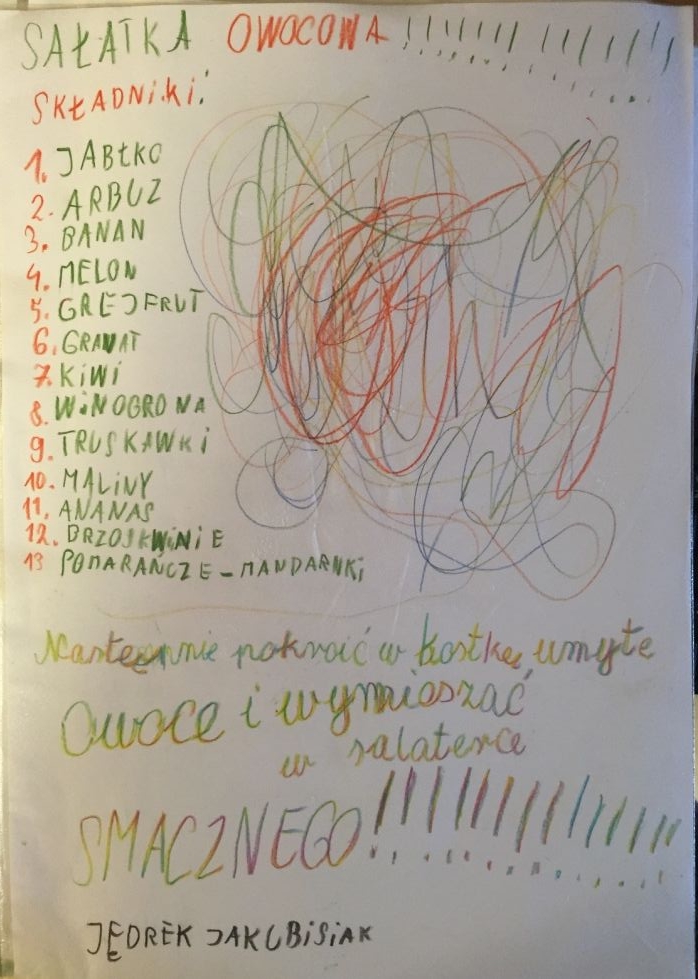 SAŁATKA OWOCOWA !!!!!!!!!!!!!!
SKŁADNiKi:
1. JABŁKO
2. ARBUZ
3. BANAN
4. MELON
5. GREJFRUT
6. GRANAT
7. KiWi
8. WiNOGRONA
9. TRUSKAWKi
10. MALiNY
11. ANANAS
12. BRZOSKWiNiE
13 POMARAŃCZE - MANDARNKi
Następnie pokroić w kostkę umyte
Owoce i wymieszać
w salaterce
SMACZNEGO!!!!!!!!!!!!!!
JĘDREK JAKUBiSiAK